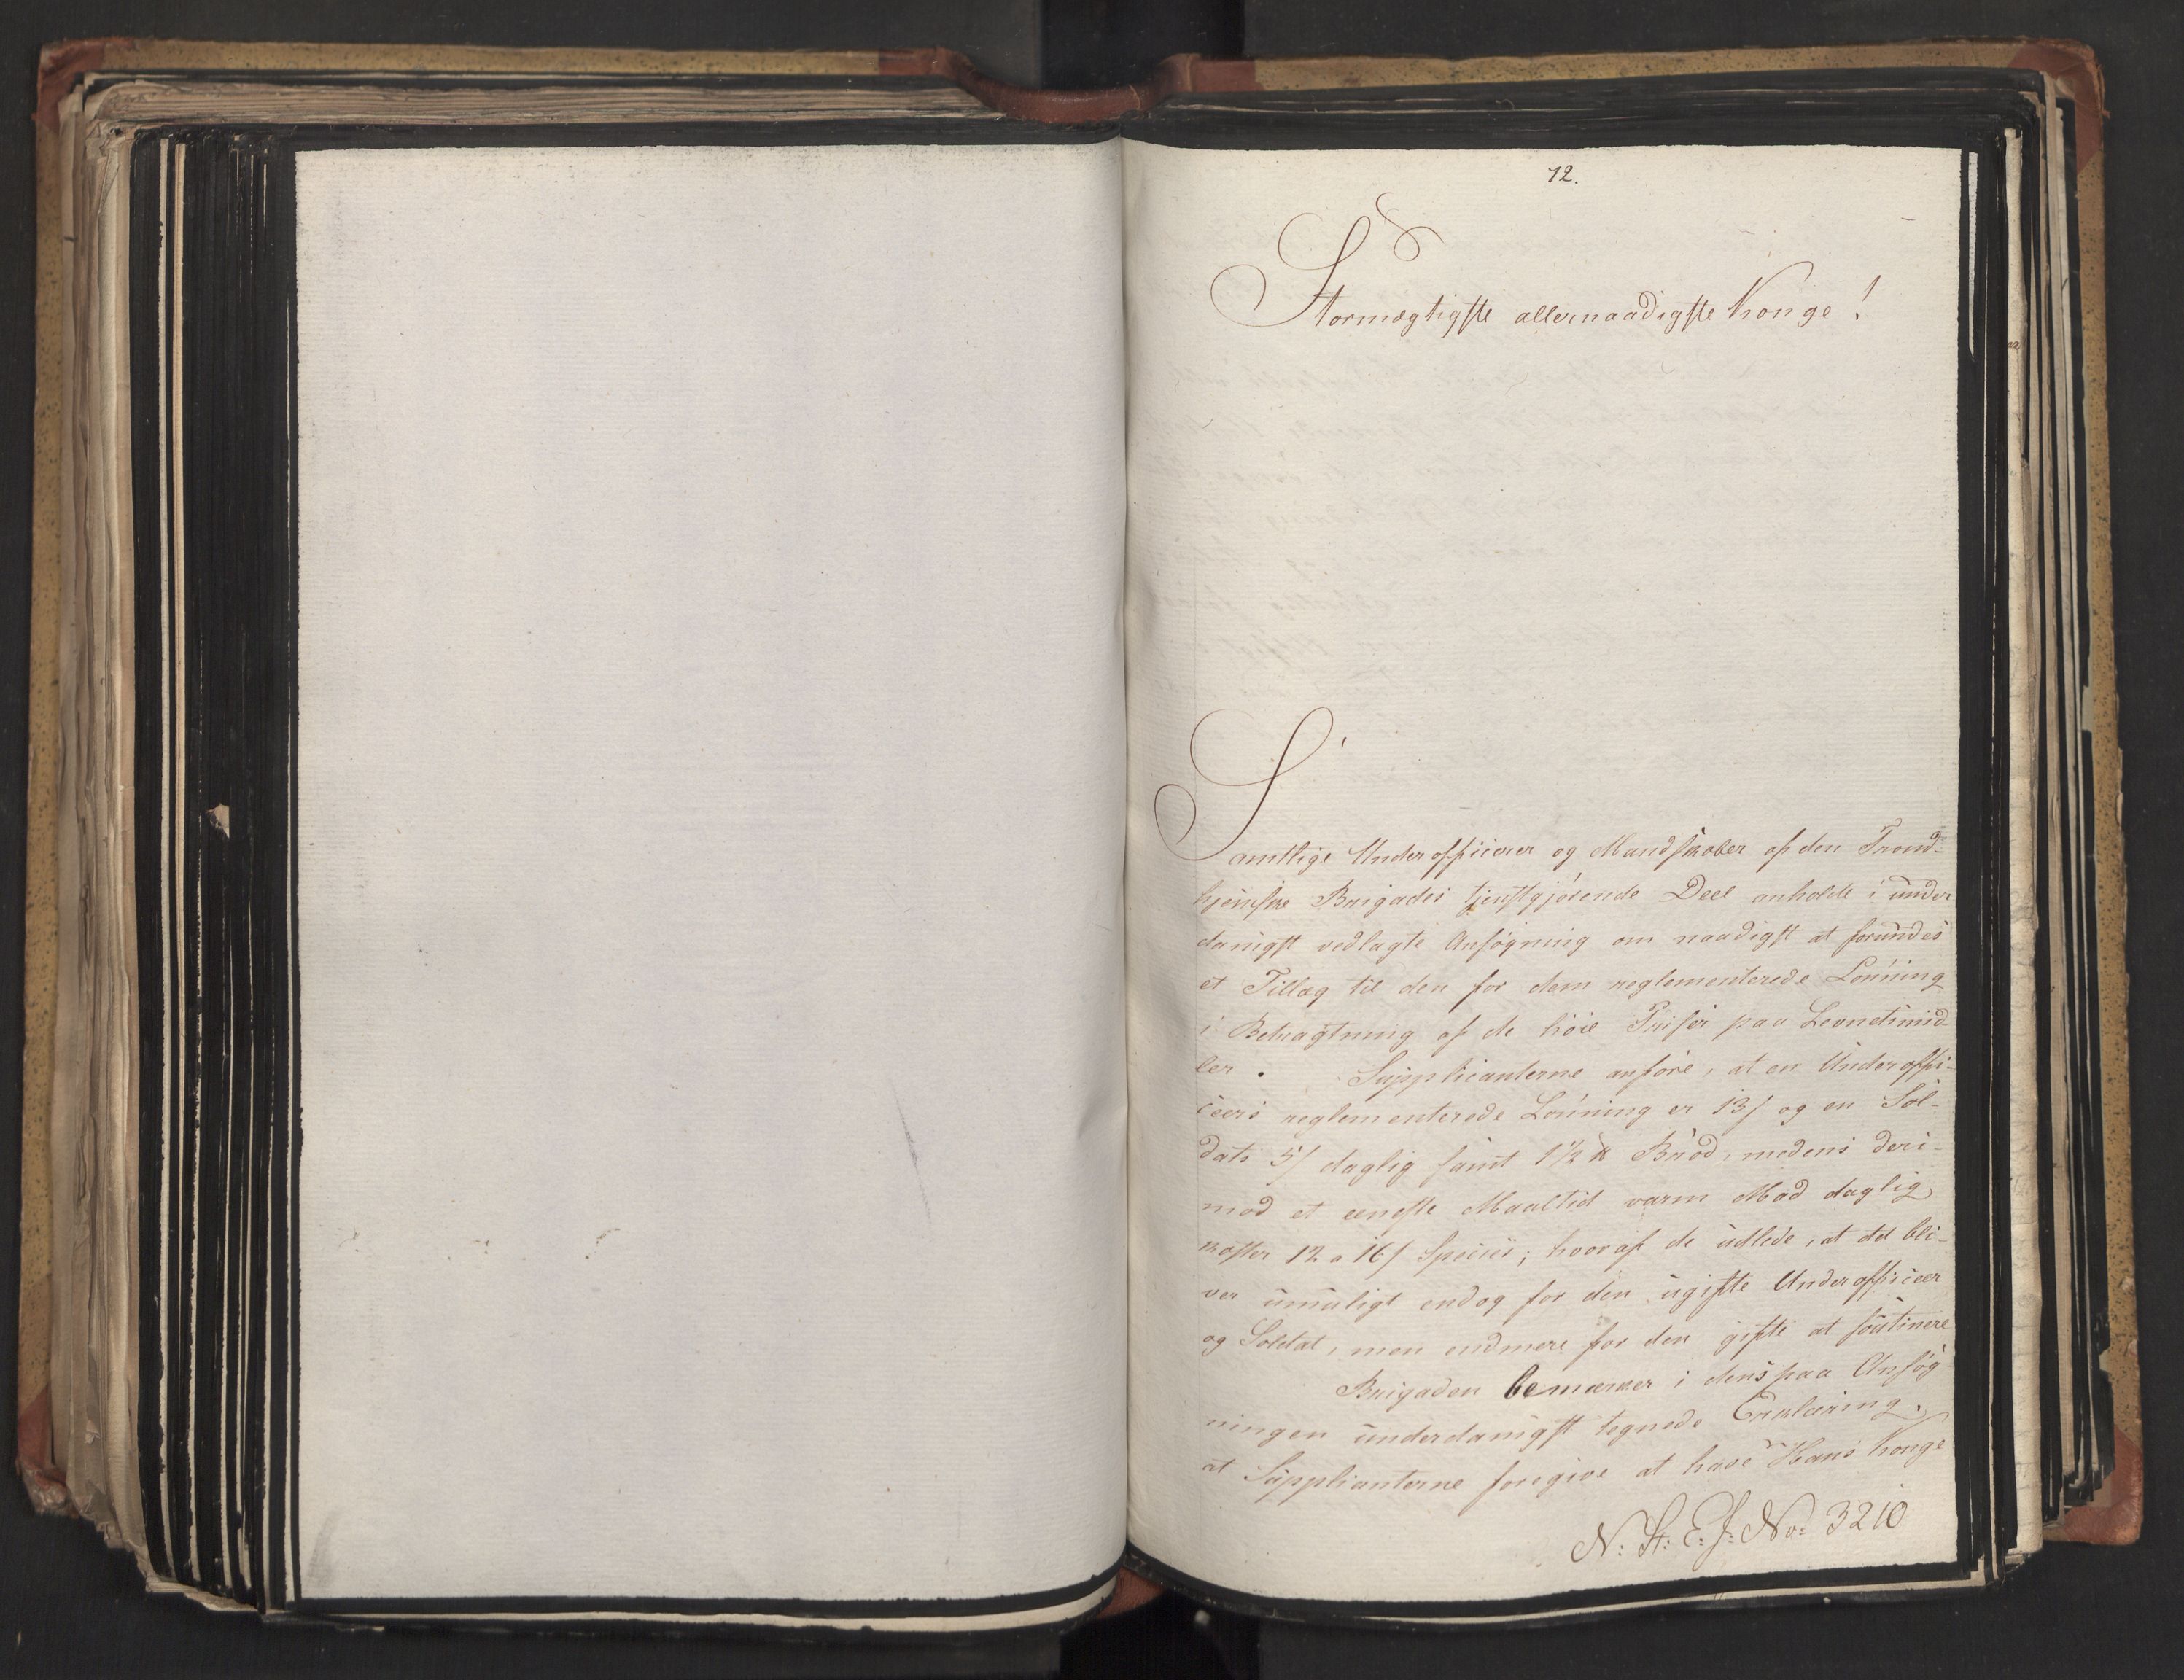 12.
Stormægtigste allernaadigste Konge!
Samtlige Underofficerer og Mandskaber af den Trond-
hjemske Brigades tjenstgjørende Deel anholde i under
danigst vedlagte Ansøgning om naadigst at forundes
et Tillæg til den for dem reglementerede Lønning
i Betragtning af de høie Priser paa Levnetsmid
ler. Supplicanterne anføre, at en Underoffi-
ceers reglementerede Lønning er 13 s og en Sol-
dats 5 s daglig samt 1 1/2 ℔ Brød, medens deri-
mod et eeneste Maaltid varm Mad daglig
koster 12 a 16 s Species; hvoraf de udlede, at det bli-
ver umuligt endog for den ugifte Underofficeer
og Soldat, men endmere for den gifte at soutinere
Brigaden bemærker i dens paa Ansøg-
ningen underdanigst tegnede Erklæring,
at Supplianterne foregive at have Hans Konge
N: St: E: J: No: 3210